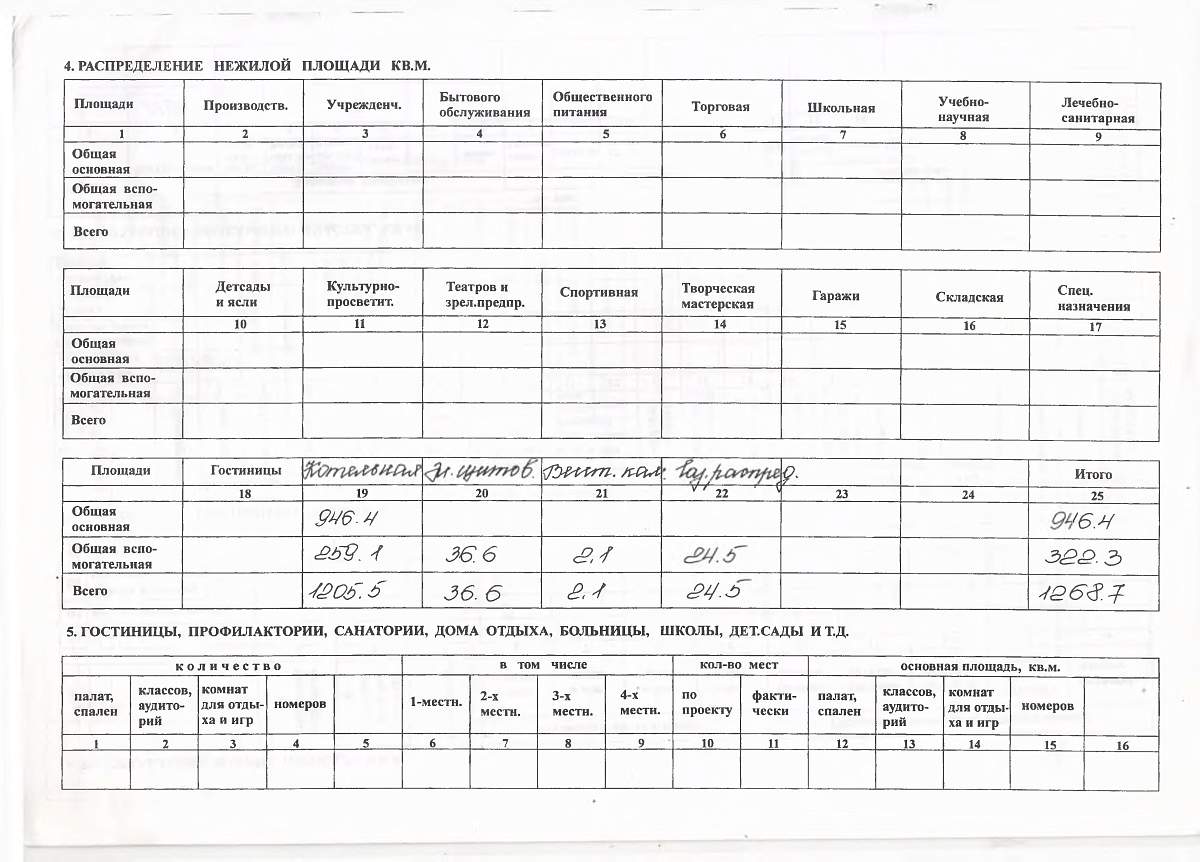 4. РАСПРЕДЕЛЕНИЕ НЕЖИЛОЙ ПЛОЩАДИ КВ.М.
Площади Производств. Учрежденч. Бытового обслуживания Общественного питания Торговая Школьная Учебно-научная Лечебно-санитарная
1 2 3 4 5 6 7 8 9
Общая основная
Общая вспо-
могательная
Всего
Площади Детсады и ясли Культурно-просветит. Театров и зрел.предпр. Спортивная Творческая мастерская Гаражи Складская Спец. назначения
10 11 12 13 14 15 16 17
Общая основная
Общая вспо-
могательная
Всего
Площади Гостиницы Котельная Эл. щитов. Вент. кам. Газ. распред. Итого
18 19 20 21 22 23 24 25
Общая основная 946.4 946.4
Общая вспо-
могательная 259.1 36.6 2,1 24.5 322.3
Всего 1205.5 36.6 2,1 24.5 1268.7
5. ГОСТИНИЦЫ, ПРОФИЛАКТОРИИ, САНАТОРИИ, ДОМА ОТДЫХА, БОЛЬНИЦЫ, ШКОЛЫ, ДЕТ.САДЫ И Т.Д.
количество в том числе кол-во мест основная площадь, кв.м.
палат, спален классов, аудито-рий комнат для отды-ха и игр номеров 1-местн. 2-х местн. 3-х местн. 4-х местн. по проекту факти-чески палат, спален классов, аудито-рий комнат для отды-ха и игр номеров
1 2 3 4 5 6 7 8 9 10 11 12 13 14 15 16